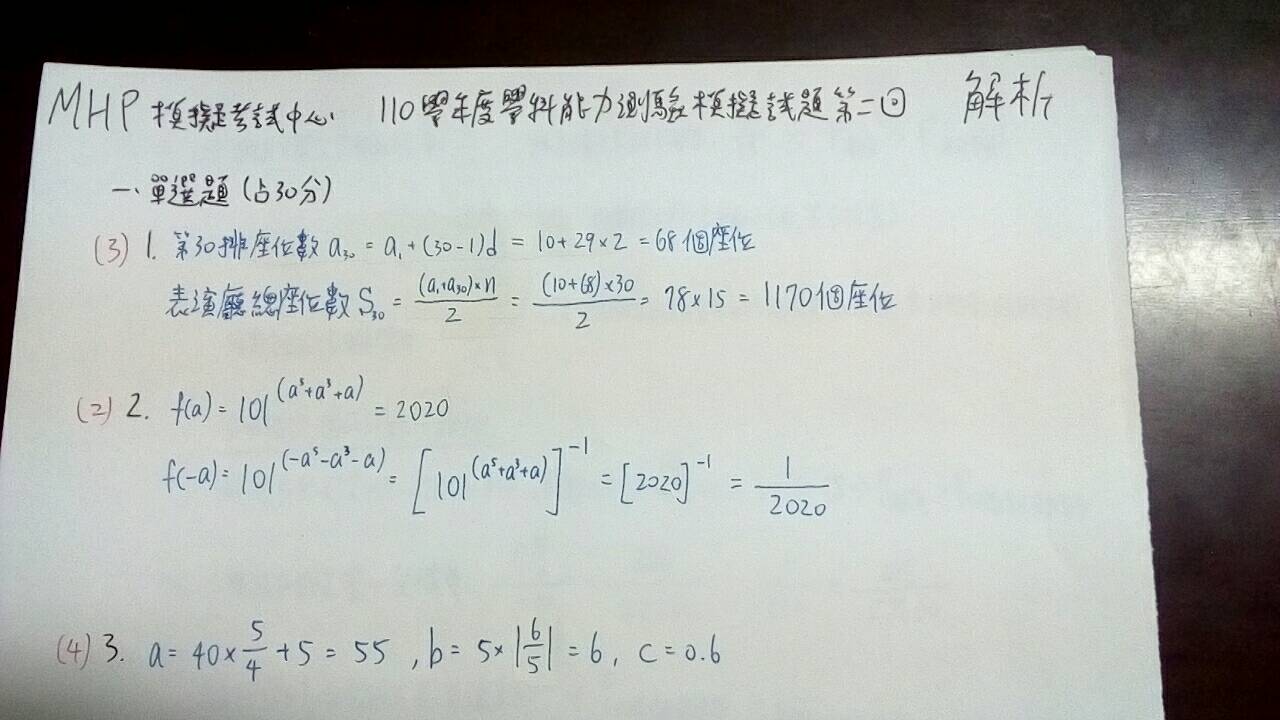 MHP 模擬考試中心 110學年度學科能力測驗模擬試題第二回 解析
一、單選題(占30分)
(3) 1. 第30排座位數 a₃₀ = a₁ + (30-1)d = 10+29×2 = 68個座位
表演廳總座位數 S₃₀ = (a₁+a₃₀)×n / 2 = (10+68)×30 / 2 = 78×15 = 1170個座位
(2) 2. f(a) = 101^(a⁵+a³+a) = 2020
f(-a) = 101^(-a⁵-a³-a) = [101^(a⁵+a³+a)]⁻¹ = [2020]⁻¹ = 1/2020
(4) 3. a = 40×5/4 + 5 = 55 , b = 5×|6/5| = 6 , c = 0.6